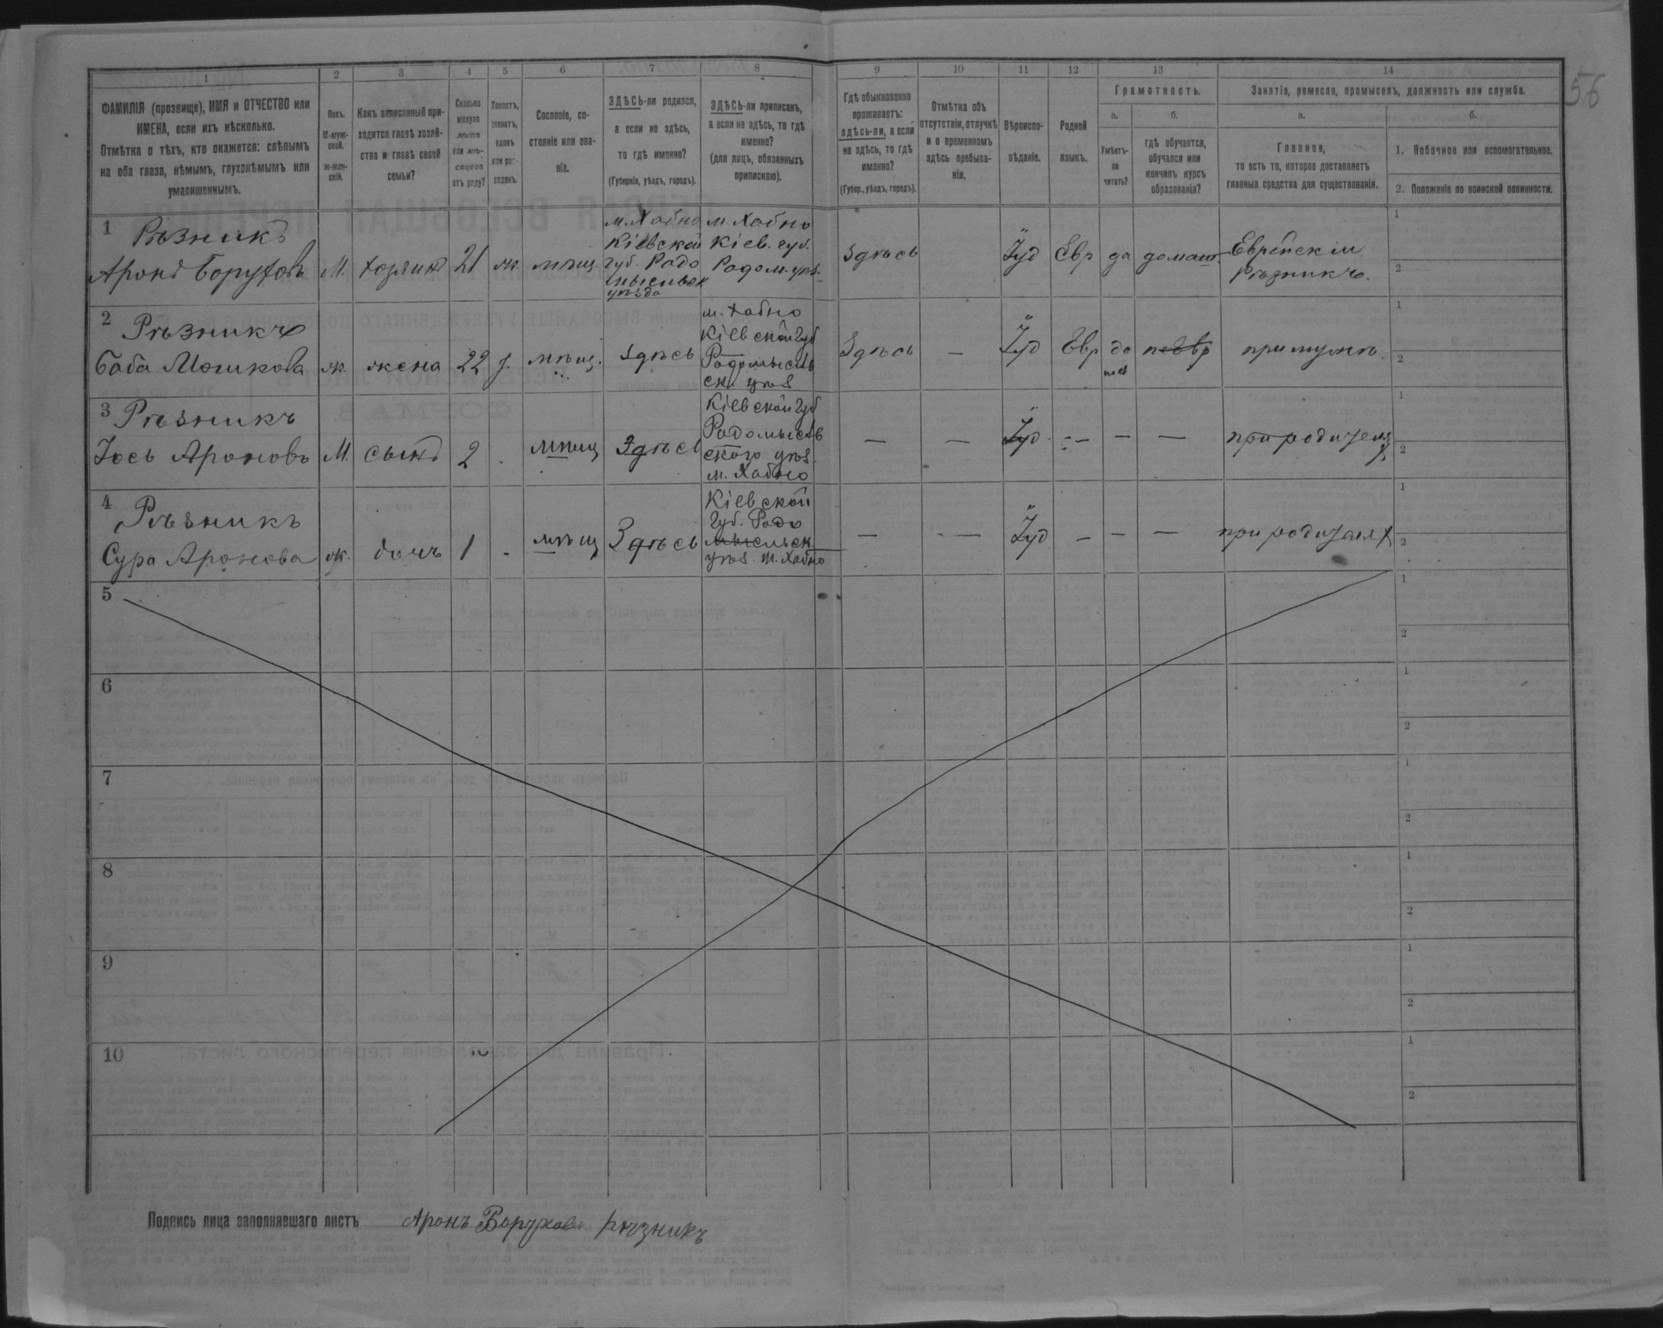 56
1 2 3 4 5 6 7 8 9 10 11 12 13 14
ФАМИЛІЯ (прозвище), ИМЯ и ОТЧЕСТВО или
ИМЕНА, если ихъ нѣсколько.
Отмѣтка о тѣхъ, кто окажется: слѣпымъ
на оба глаза, нѣмымъ, глухонѣмымъ или
умалишеннымъ.
Полъ.
М-муж-
ской.
ж-жен-
скій.
Какъ записанный при-
ходится главѣ хозяй-
ства и главѣ своей
семьи?
Сколько
минуло
лѣтъ
или мѣ-
сяцевъ
отъ роду?
Холостъ,
женатъ,
вдовъ
или раз-
веденъ.
Сословіе, со-
стояніе или зва-
ніе.
ЗДѢСЬ-ли родился,
а если не здѣсь,
то гдѣ именно?
(Губернія, уѣздъ, городъ).
ЗДѢСЬ-ли приписанъ,
а если не здѣсь, то гдѣ
именно?
(для лицъ, обязанныхъ
припискою).
Гдѣ обыкновенно
проживаетъ:
здѣсь-ли, а если
не здѣсь, то гдѣ
именно?
(Губер., уѣздъ, городъ).
Отмѣтка объ
отсутствіи, отлучкѣ
и о временномъ
здѣсь пребыва-
ніи.
Вѣроиспо-
вѣданіе.
Родной
языкъ.
Грамотность.
а.
Умѣетъ-
ли
читать?
б.
гдѣ обучается,
обучался или
кончилъ курсъ
образованія?
Занятіе, ремесло, промыселъ, должность или служба.
а.
Главное,
то есть то, которое доставляетъ
главныя средства для существованія.
б.
1. Побочное или вспомогательное.
2. Положеніе по воинской повинности.
1 Рѣзникъ
Аронъ Боруховъ
М.
хозяинъ
21
ж.
мѣщ.
м. Хабно
Кіевской
губ. Радо
мысльск
уѣзда
м. Хабно
Кіев. губ.
Радом. уѣз.
Здѣсь
Іуд
Евр
да
домаш
Еврейскій
рѣзникъ.
1
2
2 Рѣзникъ
Баба Мошкова
ж.
жена
22
з.
мѣщ.
Здѣсь
м. Хабно
Кіевской губ
Радомысль
ск. уѣз
Здѣсь
—
Іуд
Евр
при мужѣ.
1
2
3 Рѣзникъ
Іось Ароновъ
М.
сынъ
2
.
мѣщ
Здѣсь
Кіевской губ
Радомысль
ского уѣз.
м. Хабно
—
—
Іуд
-
—
—
при родителях
1
2
4 Рѣзникъ
Сура Аронова
ж.
дочь
1
.
мѣщ
Здѣсь
Кіевской
губ. Радо
мысльск
уѣз. м. Хабно
—
—
Іуд
—
—
—
при родителях
1
2
5
1
2
6
1
2
7
1
2
8
1
2
9
1
2
10
1
2
Подпись лица заполнявшаго листъ Аронъ Боруховъ рѣзникъ